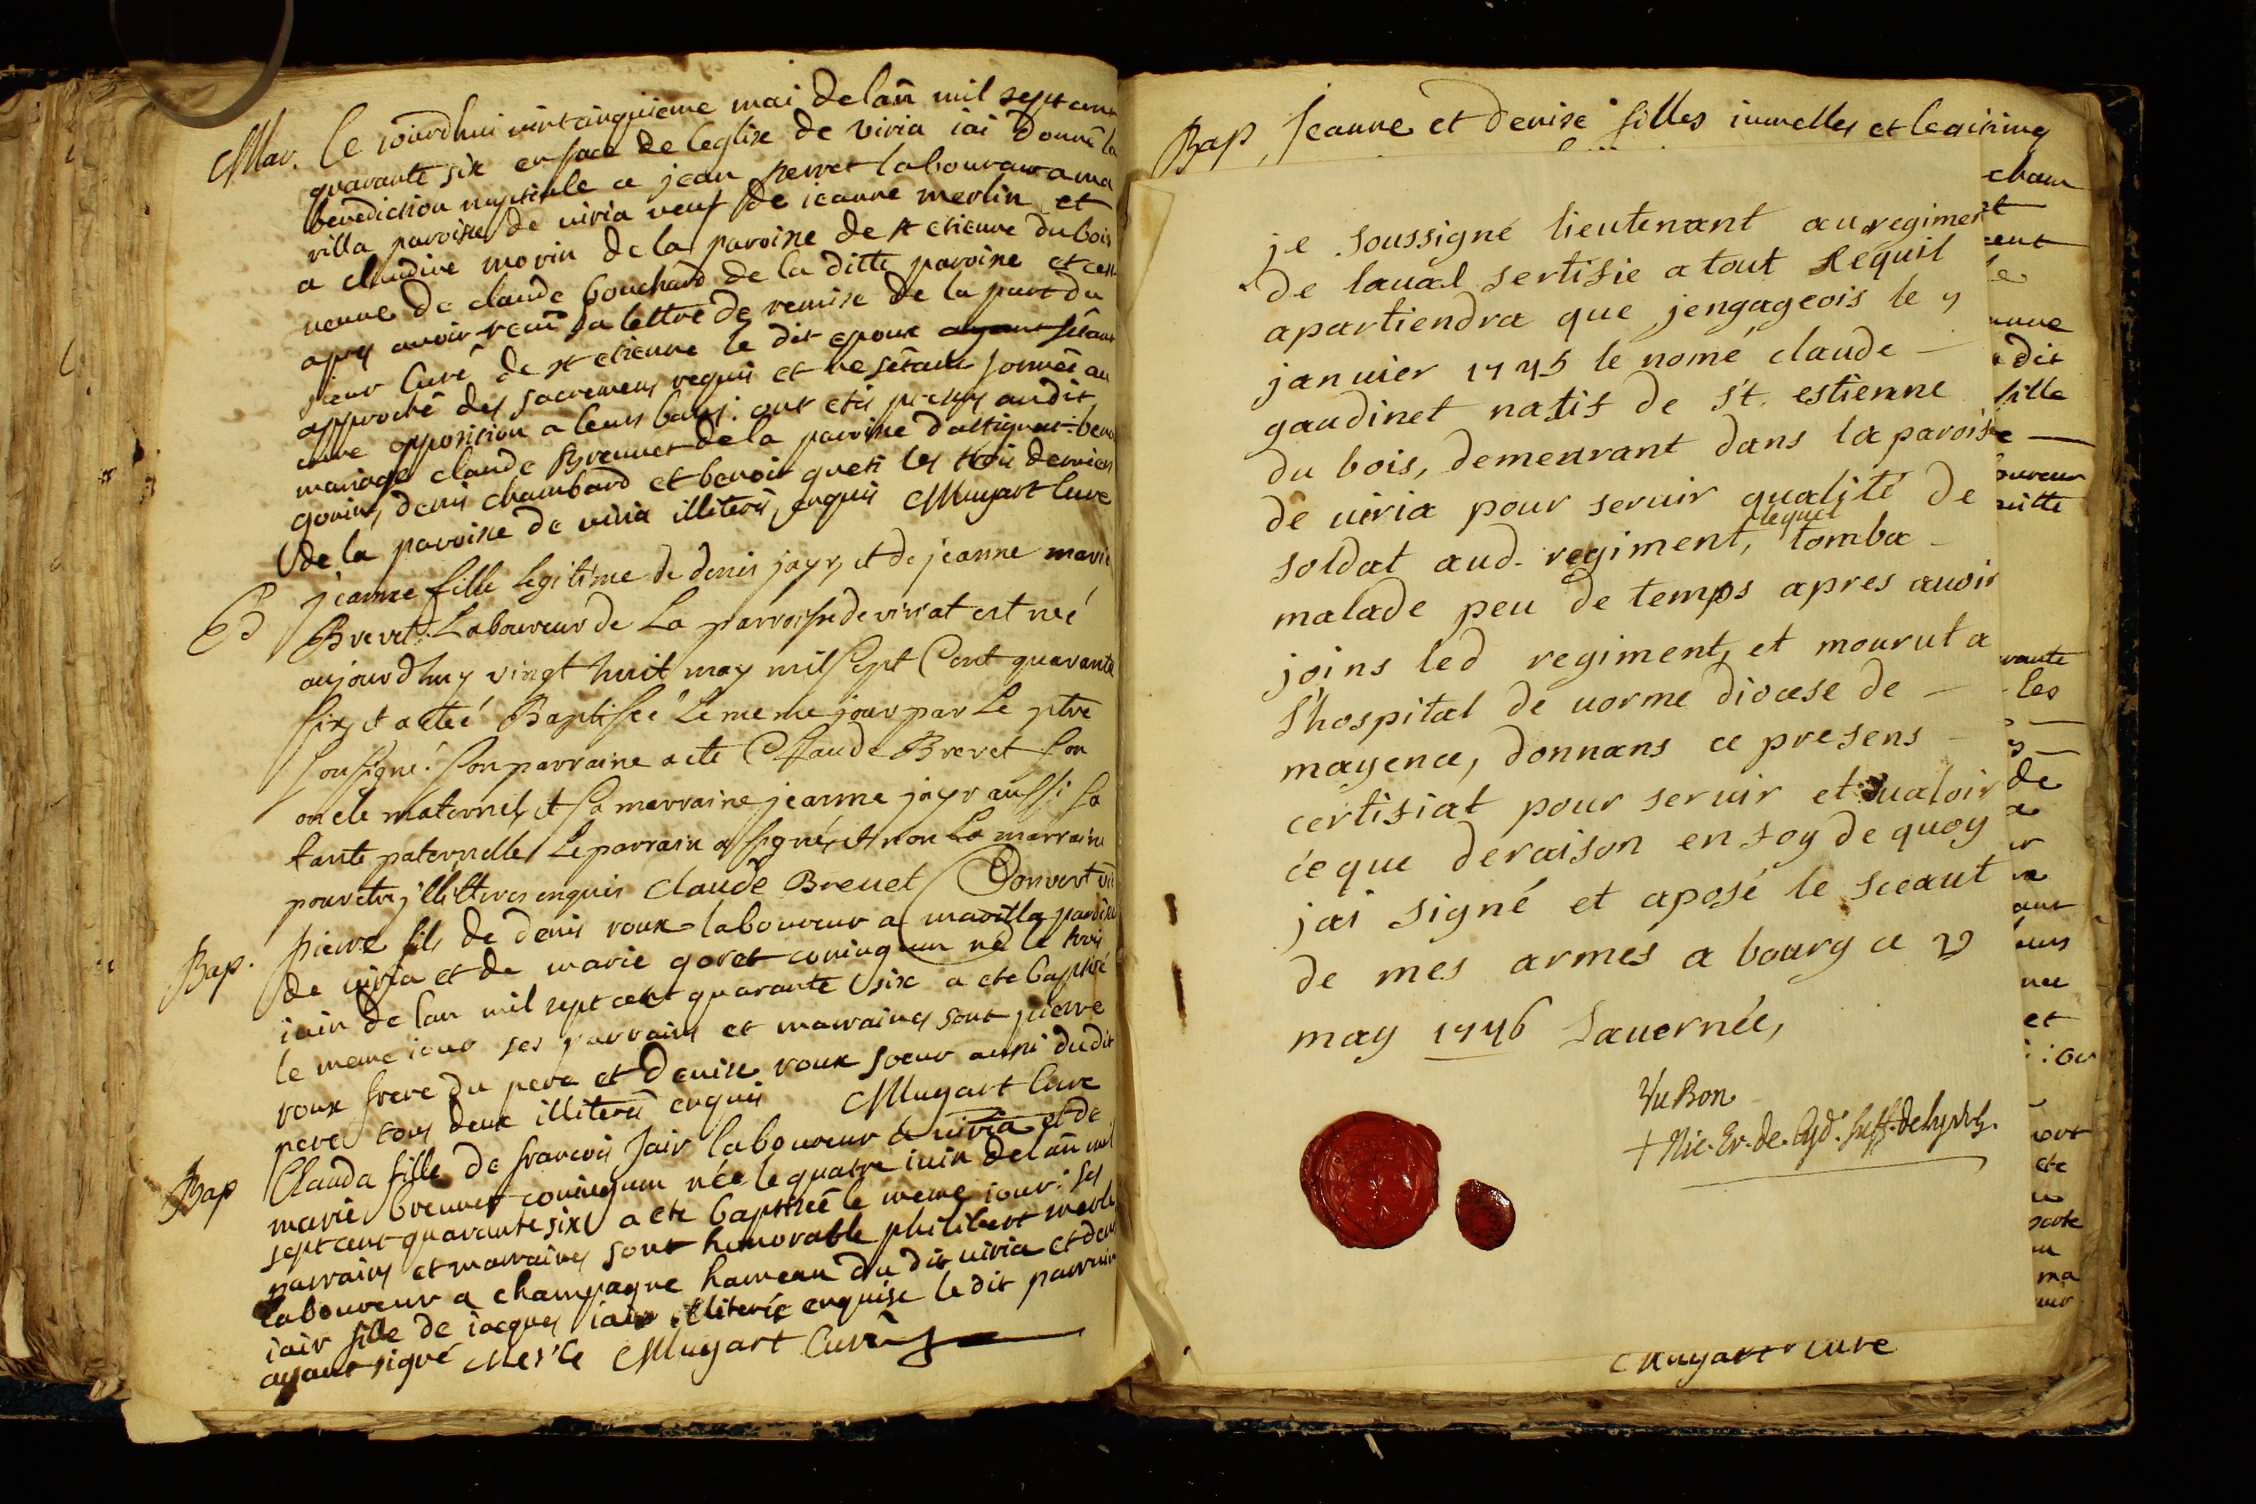 Mar. Le iourdhui vintcinquieme mai de lañ mil sept cent
quarante six en face de leglise de viria iai donné la
benediction nuptiale a jean perret laboureur a ma
villa paroisse de viria veuf de ieanne merlin et
a claudine morin de la paroisse de st etienne du bois
veuve de claude bouchard de la ditte paroisse et ce
apres avoir recu la lettre de remise de la part du
sieur Curé de st etienne le dit epoux ayant sétant
approché des sacremens requis et ne sétant formée au
cune opposition a leurs bans: ont etés presens audit
mariage claude Brennet de la paroisse d'attignat: benoit
gonins, denis chambard et benoit queti les trois derniers
de la paroisse de viria illiterés enquis Mugart Curé
B jeanne fille Legitime de denis jayr, et de jeanne marie
Brevet Laboureur de La parroisse de viriat est neé
aujourdhuy vingt huit may mil Sept Cent quarante
six, et a eteé Baptiseé Le meme jour par Le ptre
sousigné. Son parraine a ete Claude Brevet son
oncle maternel, et sa marraine jeanne jayr aussi sa
tante paternelle, Le parrain a signé, et non La marraine
pour etre illitteres enquis Claude Brevet Convert vic
Bap. pierre fils de denis roux laboureur a mavilla paroisse
de viria et de marie goret coniugum né le trois
iuin de lan mil sept cent quarante six a ete baptisé
le meme iour ses parrains et marraines sont pierre
roux frere du pere et Denise roux soeur aussi dudit
pere tous deux illiterés enquis Mugart Curé
Bap Clauda fille de francois Jair laboureur a viria et de
marie brennet coniugum née le quatre iuin de lañ mil
sept cent quarante six a ete baptisée le meme iour: ses
parrains et marraines sont honorable philibert merle
laboureur a champagne hameau du dit viria et denise
iair fille de iacques iair illiterée enquise le dit parrain
ayant signé Merle Mugart Curé
Bap Jeanne et Denise filles iumelles et legitimes
je soussigné lieutenant au regiment
de laual sertifie a tout sequil
apartiendra que jengageois le 7
januier 1745 le nomé claude
gaudinet natif de st. estienne
du bois, demeurant dans la paroisse
de uiria pour seruir qualité de
soldat aud. regiment, lequel tomba
malade peu de temps apres auoir
joins led regiment, et mourut a
l'hospital de uorme diocese de
mayence, donnans ce presens
certifiat pour seruir et ualoir
ce que deraison en foy de quoy
jai signé et aposé le sceaut
de mes armes a bourg ce 29
may 1746 Lauernée,
Vu Bon
+ Nic. Ev. de
Mugart cure